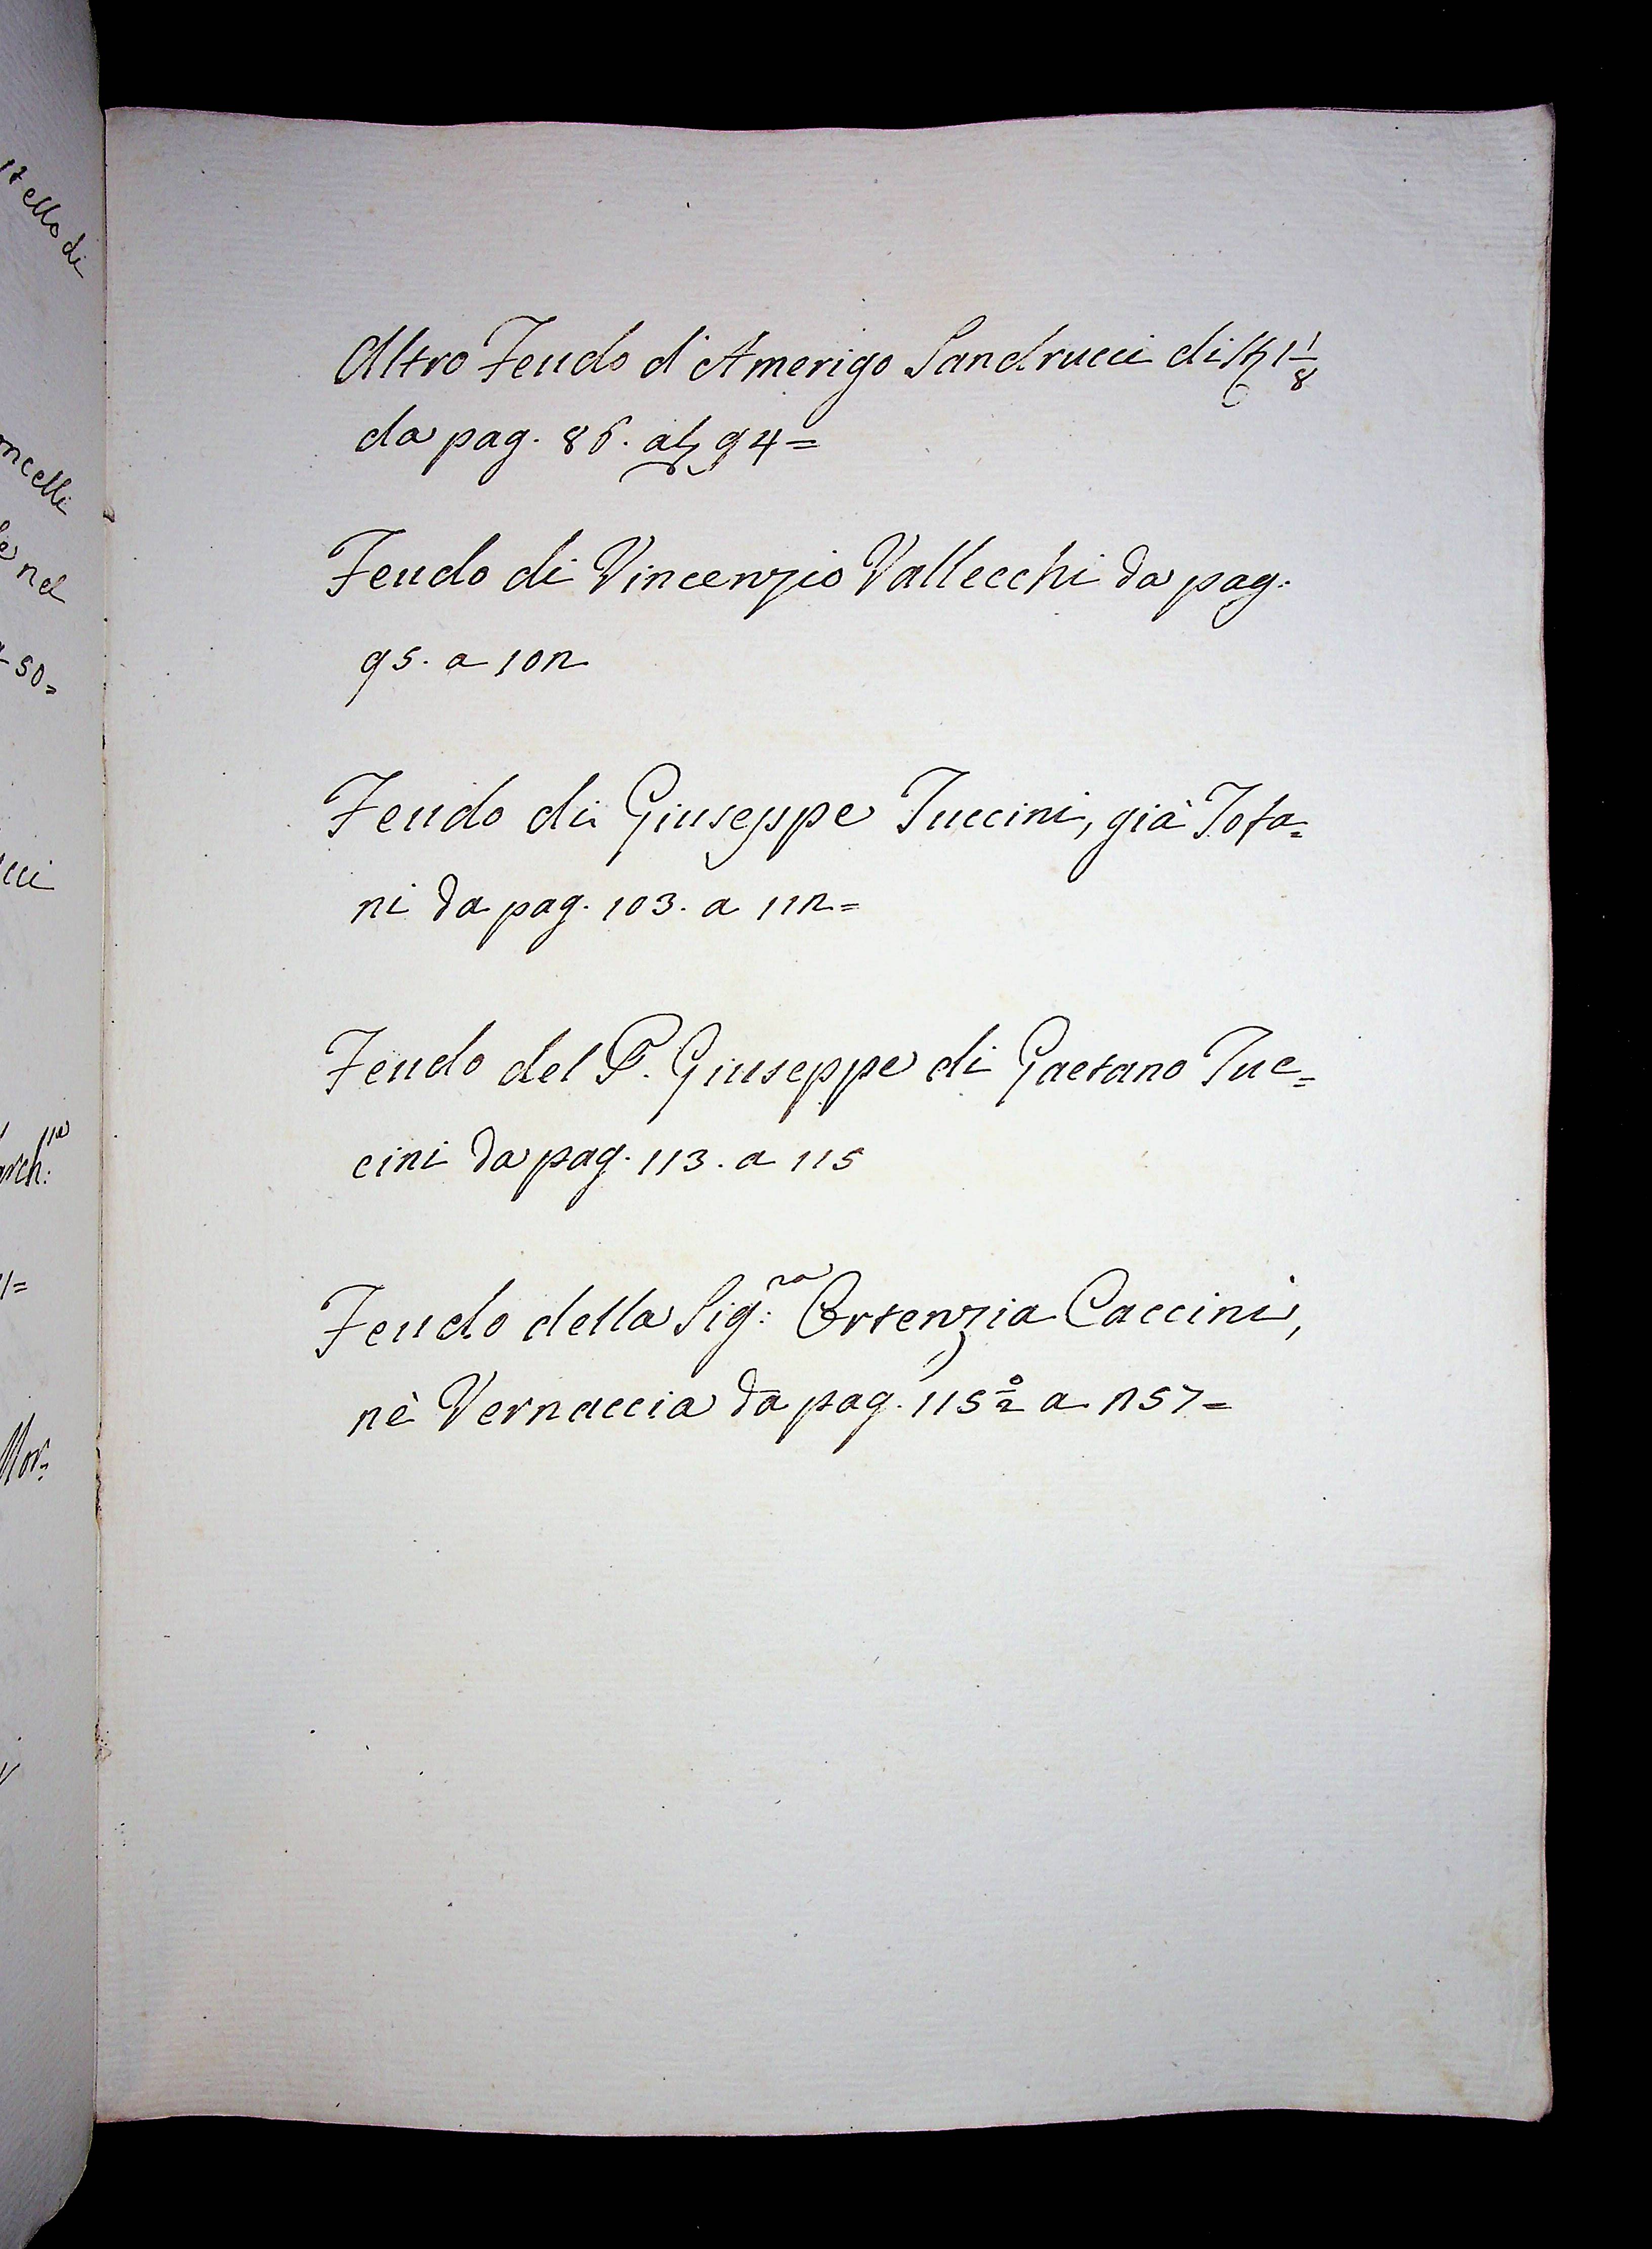 Altro Feudo d'Amerigo Sandrucci di 1 1/8
da pag. 86. al 94=
Feudo di Vincenzio Vallecchi da pag.
95. a 102
Feudo di Giuseppe Tuccini, già Tofa=
ni da pag. 103. a 112=
Feudo del P. Giuseppe di Gaetano Tuc=
cini da pag. 113. a 115
Feudo della Sig:ra Ortenzia Caccini,
nè Vernaccia da pag. 115 a 257=